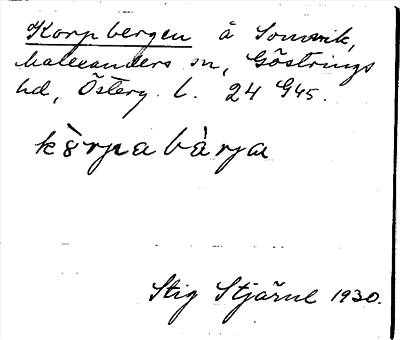 Korpbergen å Sommvik,
Malexanders sn, Göstrings
hd, Österg. l. 24 G45.
kòrpabàrja
Stig Stjärne 1930.